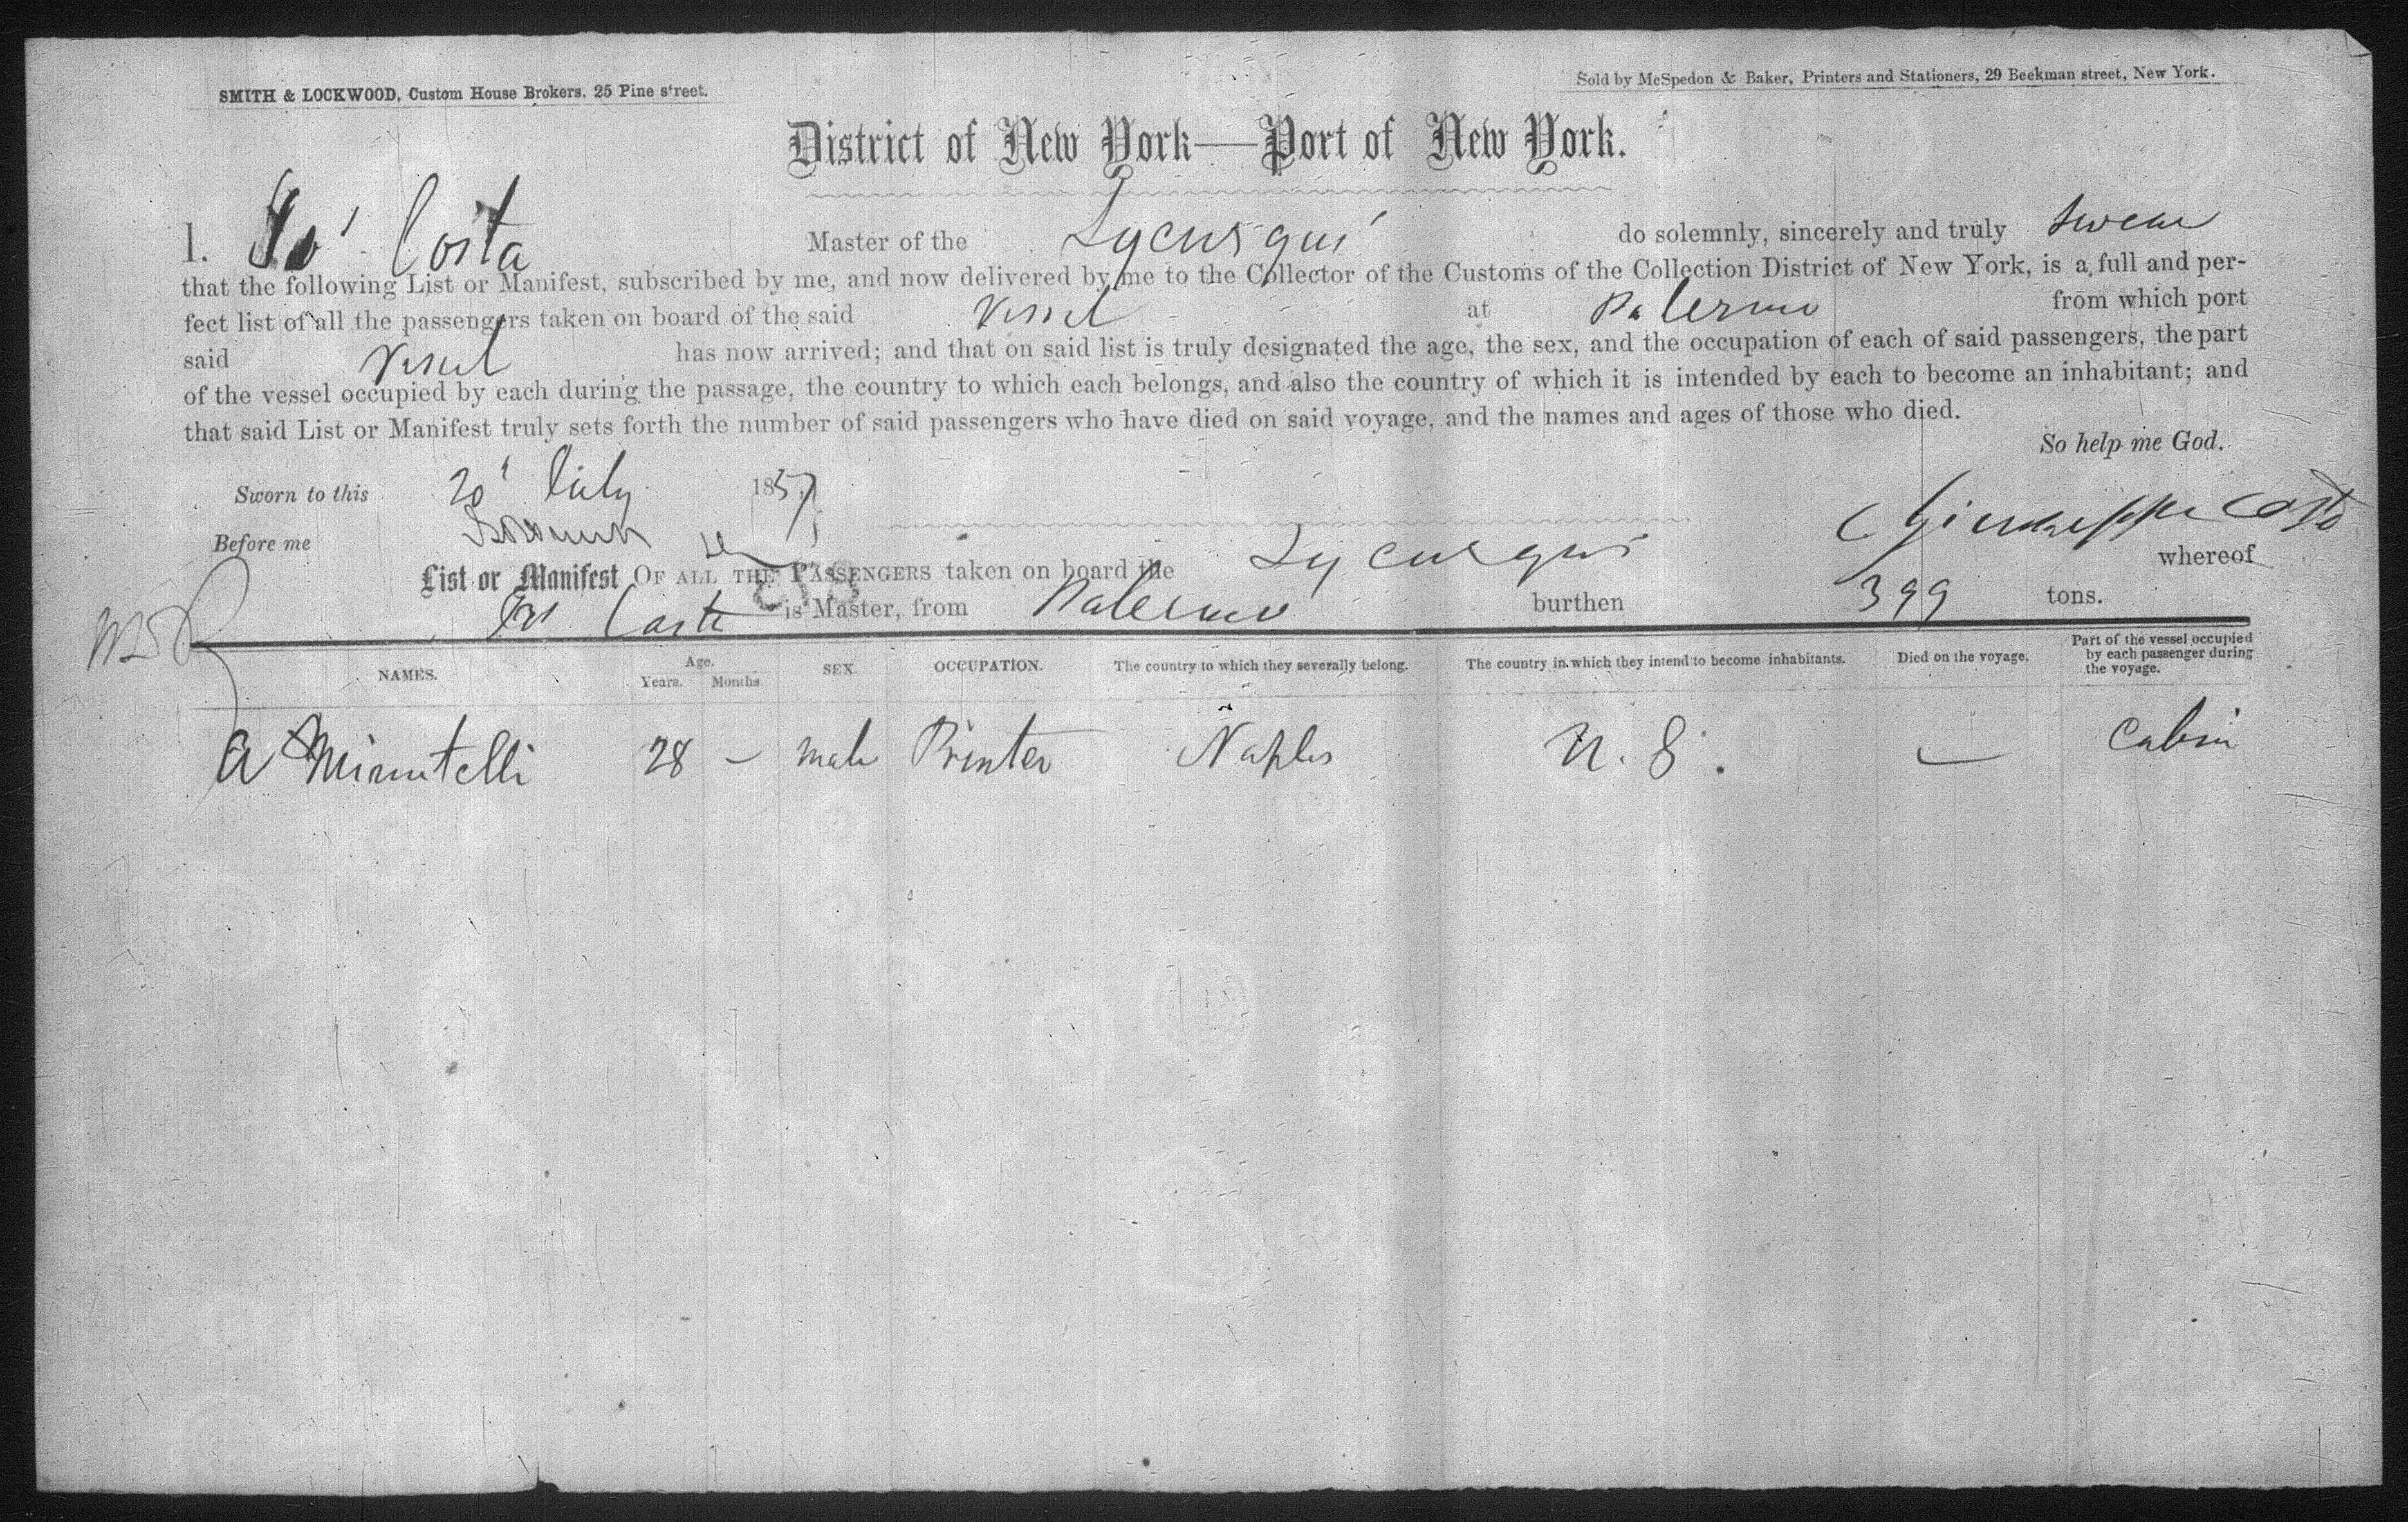 SMITH & LOCKWOOD, Custom House Brokers. 25 Pine street.
Sold by McSpedon & Baker, Printers and Stationers, 29 Beekman street, New York.
District of New York—Port of New York.
I. Costa Master of the do solemnly, sincerely and truly swear
that the following List or Manifest, subscribed by me, and now delivered by me to the Collector of the Customs of the Collection District of New York, is a full and per-
fect list of all the passengers taken on board of the said Vessel at Palermo from which port
said Vessel has now arrived; and that on said list is truly designated the age, the sex, and the occupation of each of said passengers, the part
of the vessel occupied by each during the passage, the country to which each belongs, and also the country of which it is intended by each to become an inhabitant; and
that said List or Manifest truly sets forth the number of said passengers who have died on said voyage, and the names and ages of those who died.
So help me God.
Sworn to this 20' July 1857
Before me
Giuseppe Costa
List or Manifest OF ALL THE PASSENGERS taken on board the whereof
Costa is Master, from Palermo burthen 399 tons.
NAMES. Age. Years. Months. SEX. OCCUPATION. The country to which they severally belong. The country in which they intend to become inhabitants. Died on the voyage. Part of the vessel occupied by each passenger during the voyage.
A Minutelli 28 – male Printer Naples U. S. — Cabin